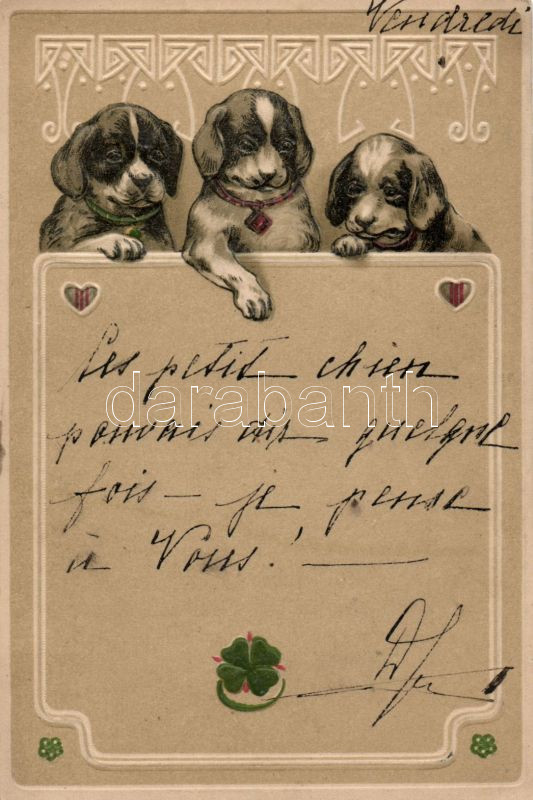 Vendredi
Les petit chien
pouvais dir quelque
fois — je pense
à Vous! —
darabanth